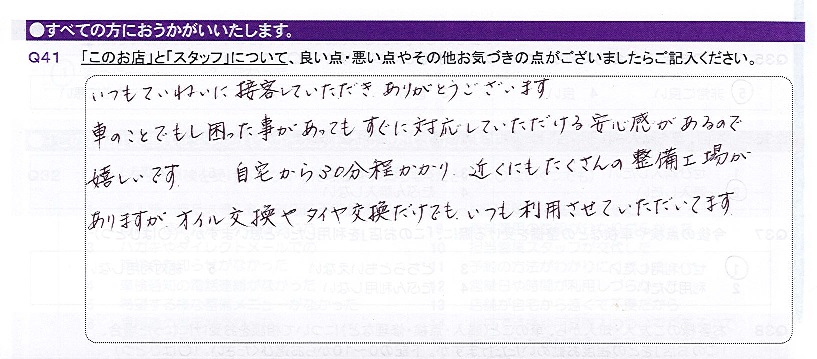 ●すべての方におうかがいいたします。
Q41 「このお店」と「スタッフ」について、良い点・悪い点やその他お気づきの点がございましたらご記入ください。
いつもていねいに接客していただきありがとうございます
車のことでもし困った事があってもすぐに対応していただける安心感があるので
嬉しいです 自宅から30分程かかり、近くにもたくさんの整備工場が
ありますが、オイル交換やタイヤ交換だけでも、いつも利用させていただいてます